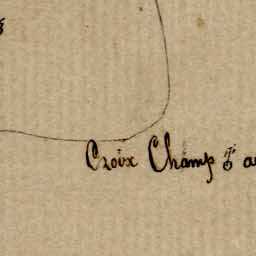 Croix Champ